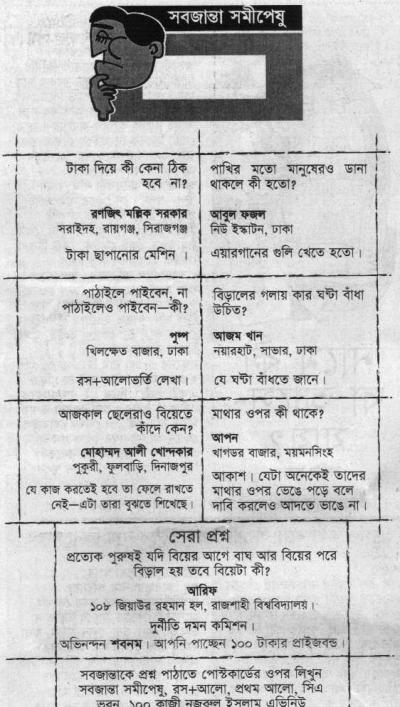 সবজান্তা সমীপেষু
টাকা দিয়ে কী কেনা ঠিক
হবে না?
রণজিৎ মল্লিক সরকার
সরাইদহ, রায়গঞ্জ, সিরাজগঞ্জ
টাকা ছাপানোর মেশিন ।
পাখির মতো মানুষেরও ডানা
থাকলে কী হতো?
আবুল ফজল
নিউ ইস্কাটন, ঢাকা
এয়ারগানের গুলি খেতে হতো।
পাঠাইলে পাইবেন, না
পাঠাইলেও পাইবেন—কী?
পুষ্প
খিলক্ষেত বাজার, ঢাকা
রস+আলোভর্তি লেখা।
বিড়ালের গলায় কার ঘন্টা বাঁধা
উচিত?
আজম খান
নয়ারহাট, সাভার, ঢাকা
যে ঘন্টা বাঁধতে জানে।
আজকাল ছেলেরাও বিয়েতে
কাঁদে কেন?
মোহাম্মদ আলী খোন্দকার
পুকুরী, ফুলবাড়ি, দিনাজপুর
যে কাজ করতেই হবে তা ফেলে রাখতে
নেই—এটা তারা বুঝতে শিখেছে।
মাথার ওপর কী থাকে?
আপন
খাগডর বাজার, ময়মনসিংহ
আকাশ। যেটা অনেকেই তাদের
মাথার ওপর ভেঙে পড়ে বলে
দাবি করলেও আদতে ভাঙে না।
সেরা প্রশ্ন
প্রত্যেক পুরুষই যদি বিয়ের আগে বাঘ আর বিয়ের পরে
বিড়াল হয় তবে বিয়েটা কী?
আরিফ
১০৮ জিয়াউর রহমান হল, রাজশাহী বিশ্ববিদ্যালয়।
দুর্নীতি দমন কমিশন।
অভিনন্দন শবনম। আপনি পাচ্ছেন ১০০ টাকার প্রাইজবন্ড।
সবজান্তাকে প্রশ্ন পাঠাতে পোস্টকার্ডের ওপর লিখুন
সবজান্তা সমীপেষু, রস+আলো, প্রথম আলো, সিএ
ভবন, ১০০ কাজী নজরুল ইসলাম এভিনিউ